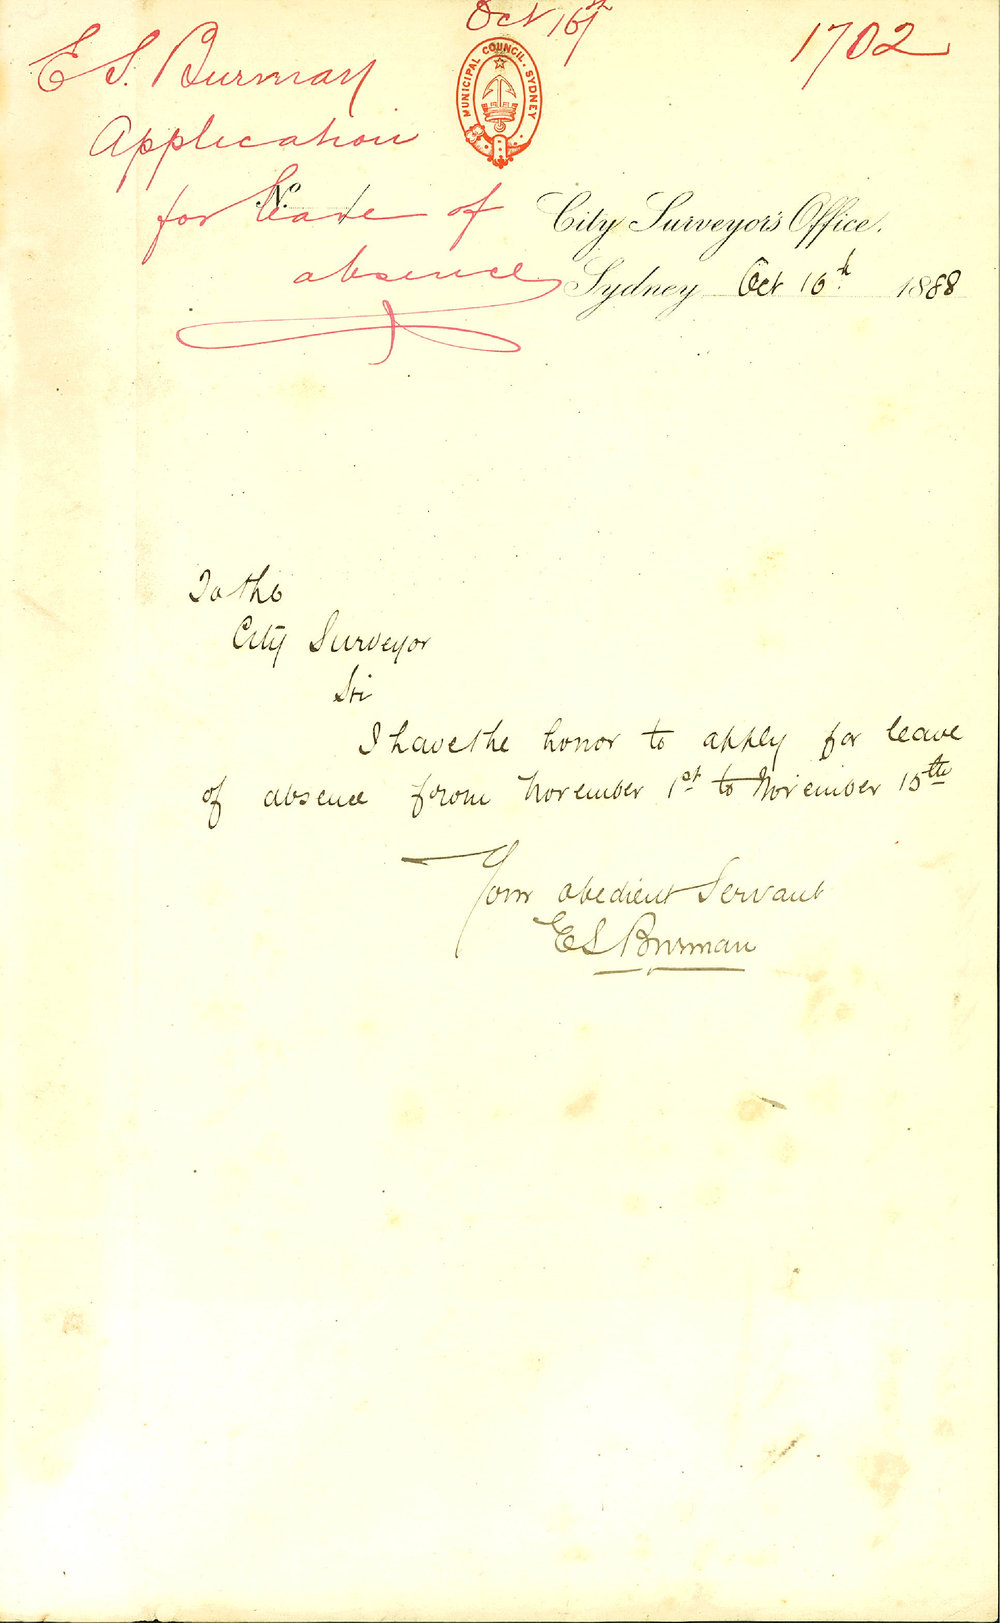 Oct 16th
1702
E S. Burman
Application
for leave of
absence
MUNICIPAL COUNCIL. SYDNEY
No
City Surveyor's Office.
Sydney Oct 16th 1888
To the
City Surveyor
Sir
I have the honor to apply for leave
of absence from November 1st to November 15th
Your obedient Servant
E S Burman